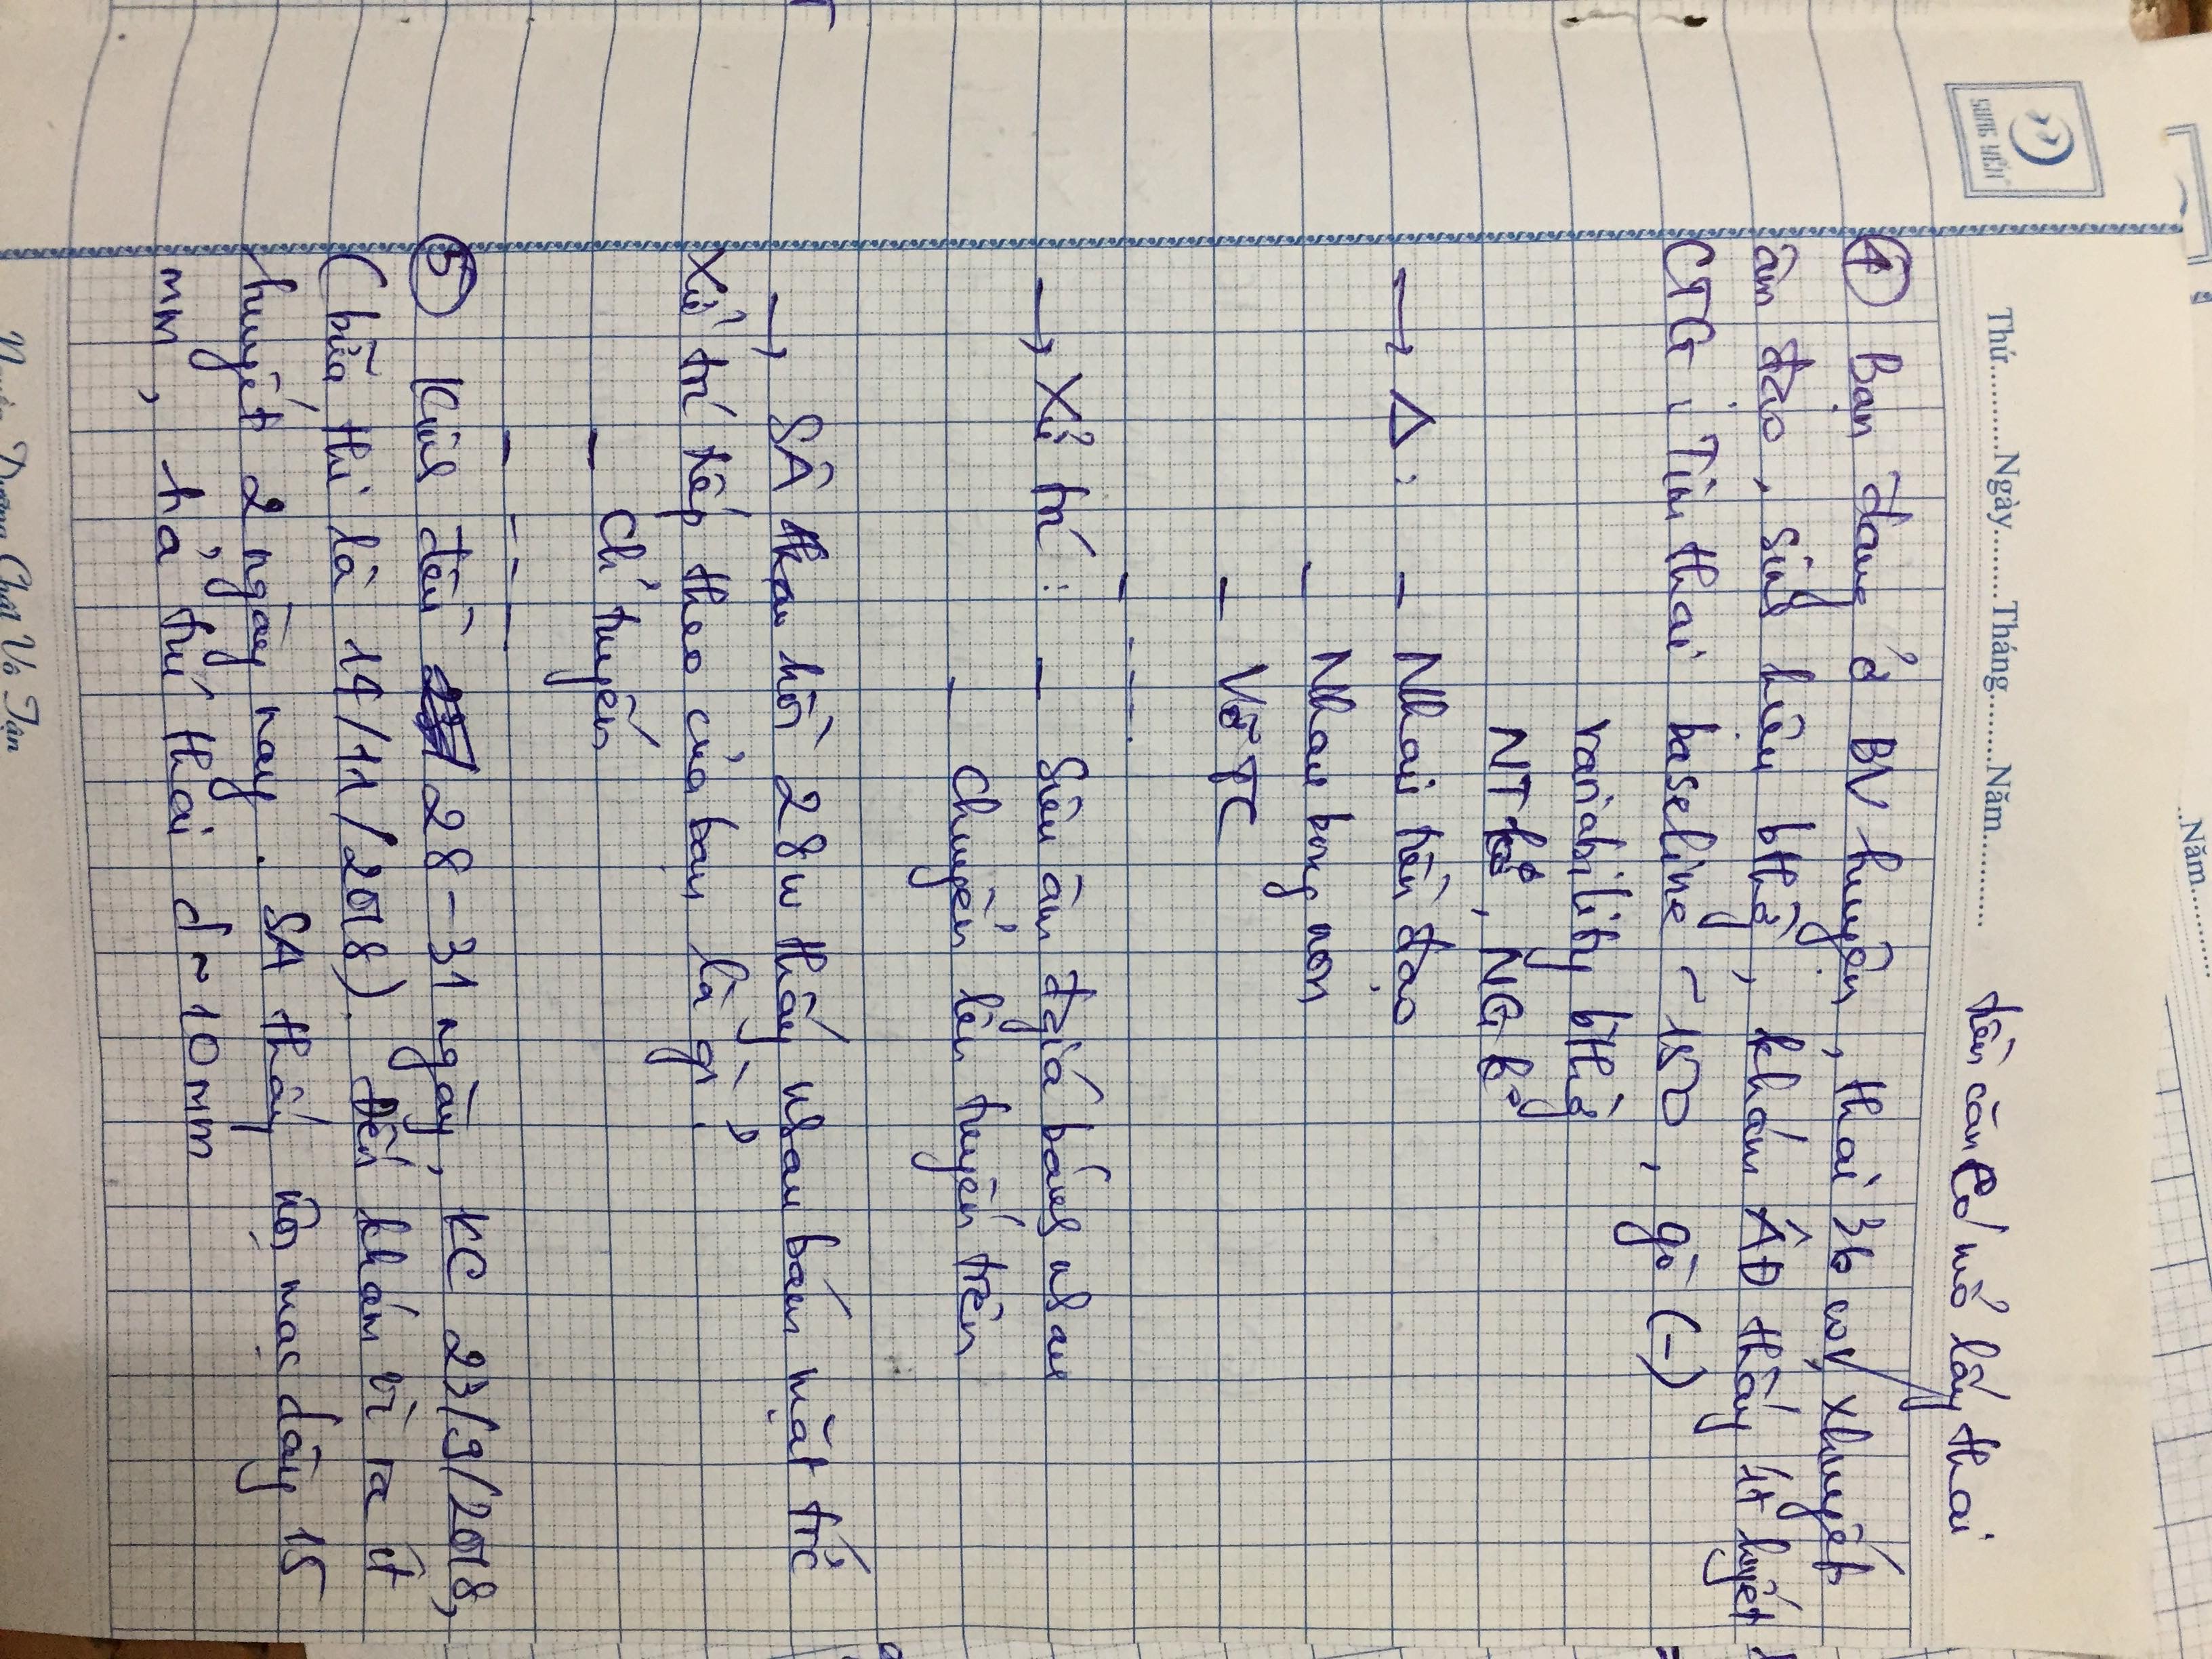 Năm
SONG YẾN
Thứ..........Ngày........Tháng........Năm...........
tiền căn có mổ lấy thai
④ Bạn đang ở BV huyện, thai 36 xhuyết
âm đạo, sinh hiệu bthg, khám ÂĐ thấy ít huyết
CTG: Tim thai baseline ~150, gò (-)
variability bthg
NT k°, NG k°
→ Δ: - Nhau tiền đạo
- Nhau bong non
- Vỡ TC
- ----.
→ Xử trí: - Siêu âm đgiá bánh nhau
- Chuyển lên tuyến trên
→ SÂ hồi 28w thấy nhau bám mặt trc
Xử trí tiếp theo của bạn là gì?
- Ch tuyến
- ----
⑤ Kinh đều 28-31 ngày, KC 23/9/2018,
(bữa thi là 14/11/2018). Đến khám vì ra ít
huyết 2 ngày nay. SA thấy nội mạc dày 15
mm, hả túi thai d ~ 10mm
Nguồn Dưỡng Chất Vô Tận